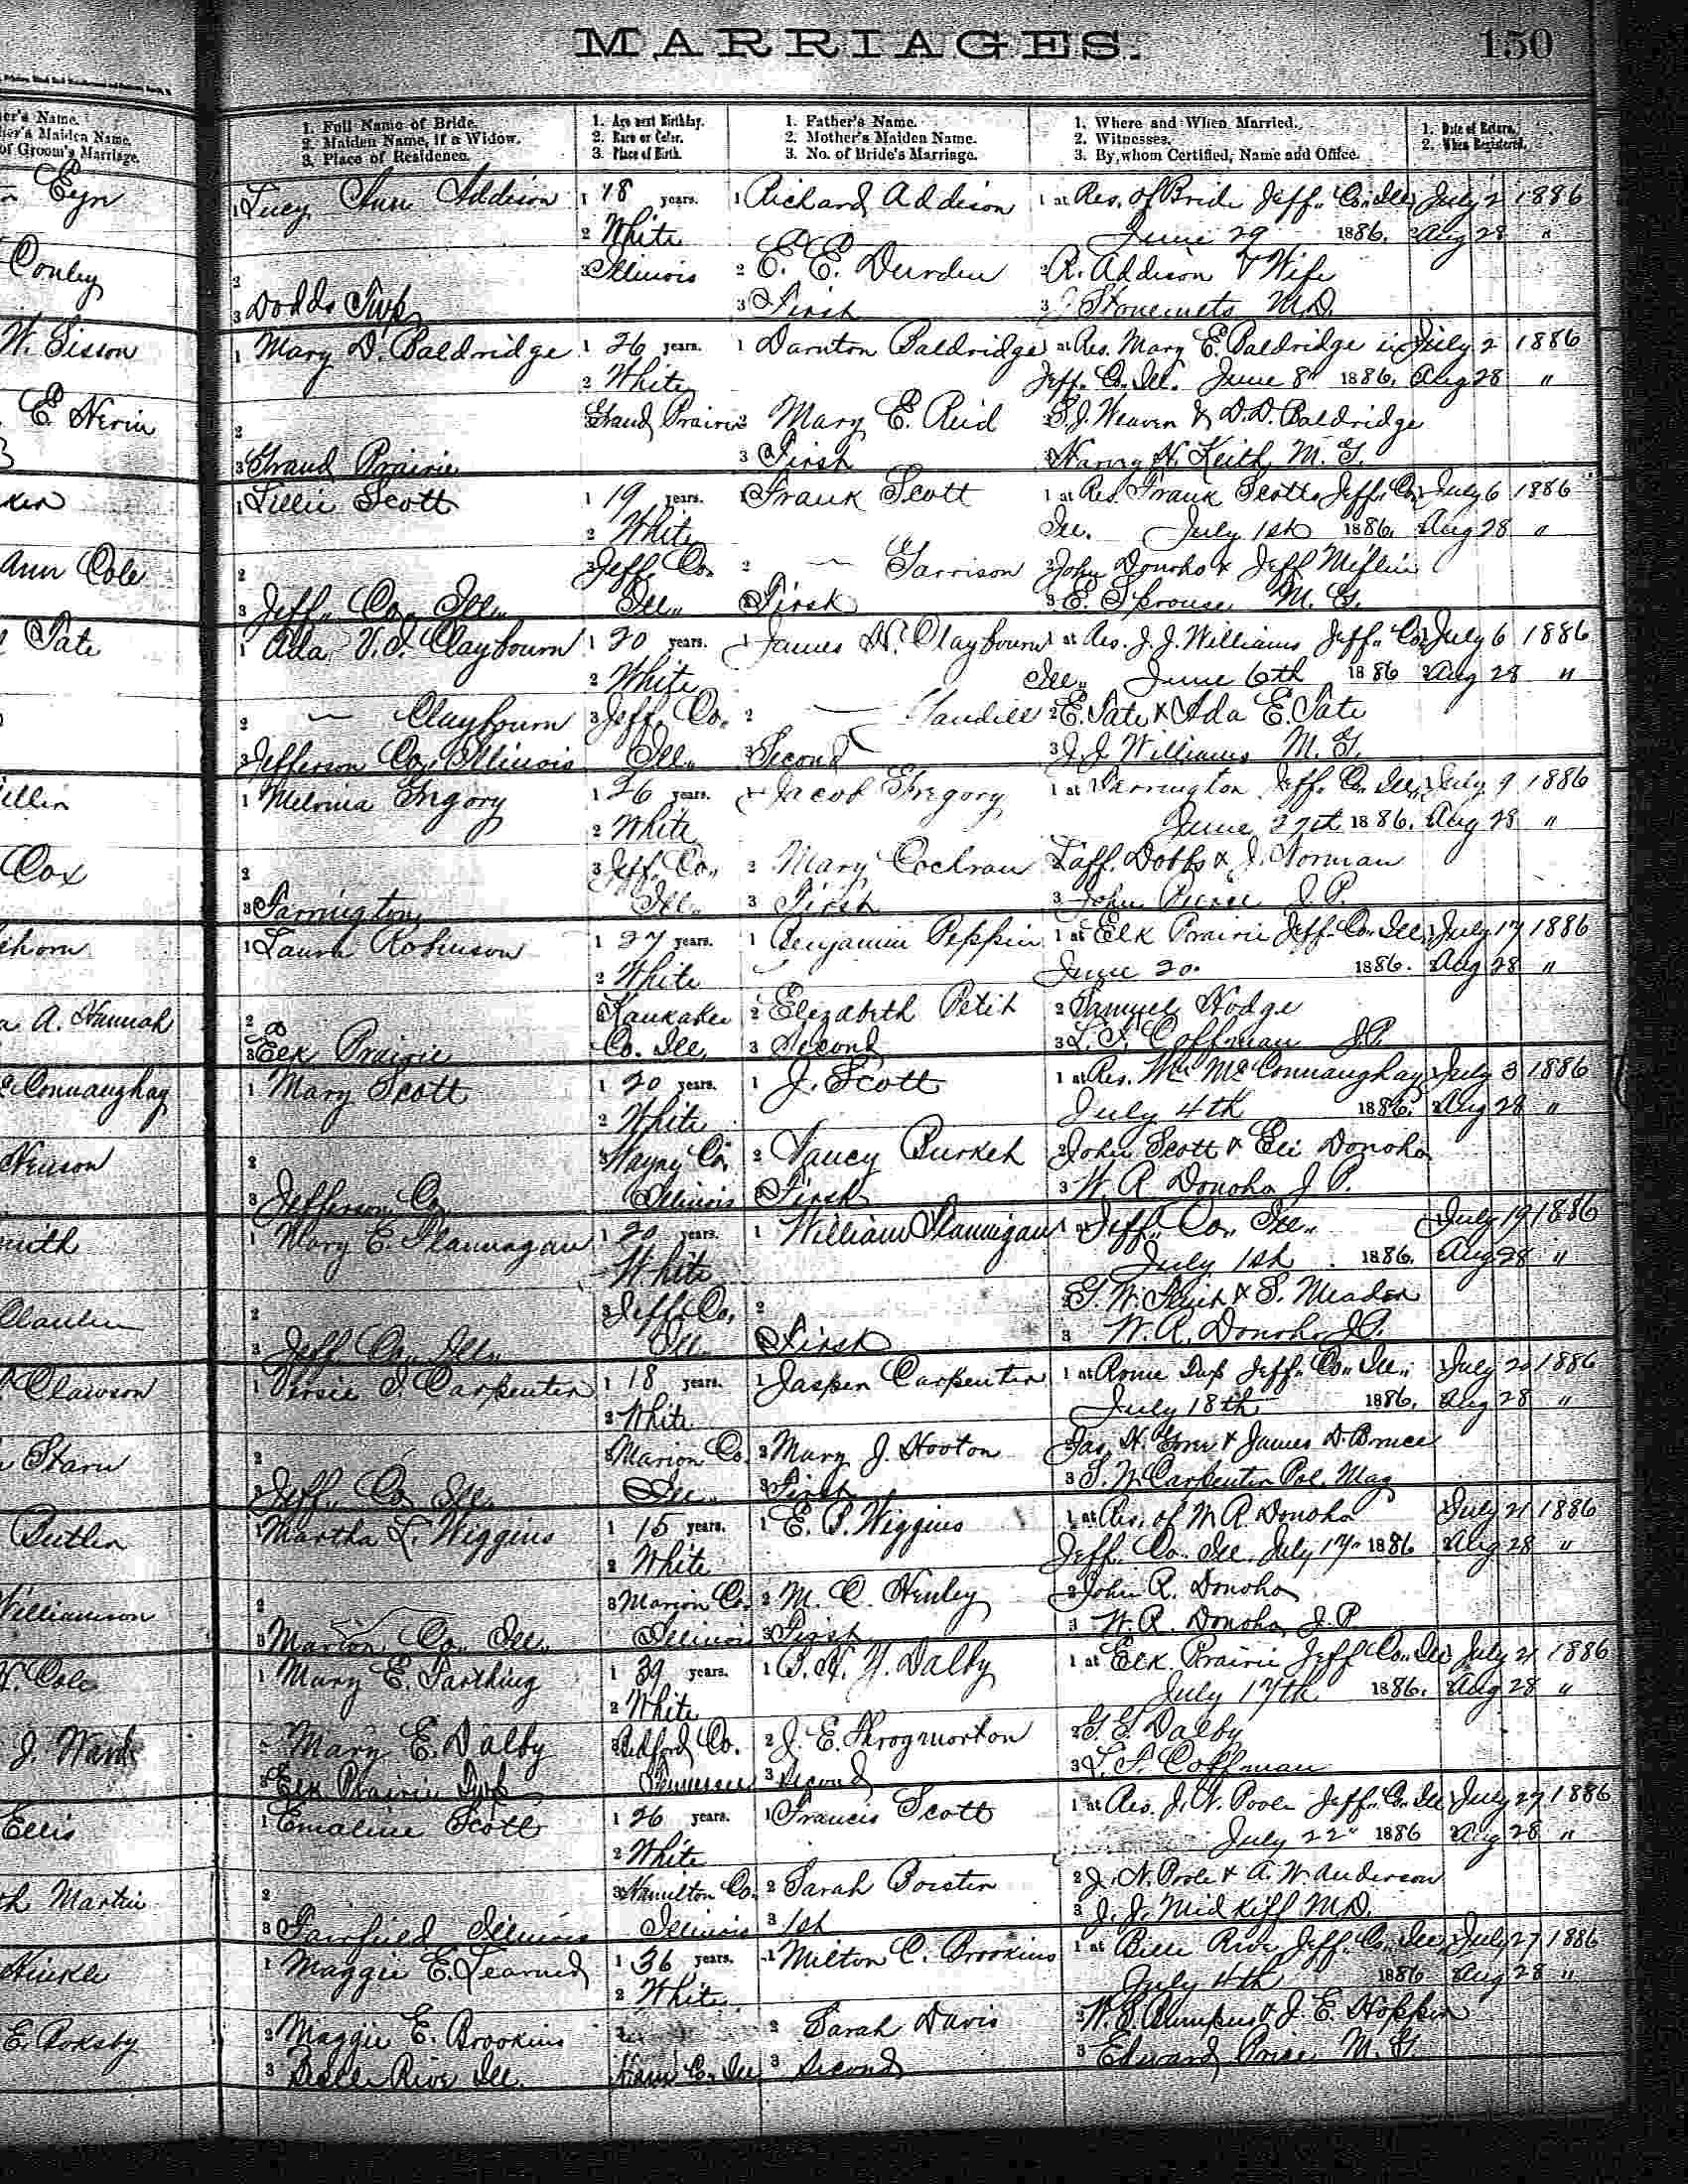 MARRIAGES.
150
er's Name.
er's Maiden Name.
of Groom's Marriage.
1. Full Name of Bride.
2. Maiden Name, if a Widow.
3. Place of Residence.
1. Age next Birthday.
2. Race or Color.
3. Place of Birth.
1. Father's Name.
2. Mother's Maiden Name.
3. No. of Bride's Marriage.
1. Where and When Married.
2. Witnesses.
3. By whom Certified, Name and Office.
1. Date of Return.
2. When Registered.
1 Lucy Ann Addison 1 18 years. 1 Richard Addison 1 at Res. of Bride Jeff. Co. Ill. July 2 1886
2 White June 29 1886. 2 Aug 28 "
Conley 2 3 Illinois 2 E. E. Durden 2 R. Addison & Wife
3 Dodds Twp 3 First 3 Stonemets M.D.
W. Sisson 1 Mary D. Baldridge 1 26 years. 1 Darnton Baldridge 1 at Res. Mary E. Baldridge in July 2 1886
2 White Jeff. Co. Ill. June 8" 1886. Aug 28 "
2 Grand Prairie 2 Mary E. Reid 2 S. J. Weaver & D. D. Baldridge
3 Grand Prairie 3 First 3 Harvey H. Keith M. G.
1 Lillie Scott 1 19 years. 1 Frank Scott 1 at Res. Frank Scotts Jeff. Co. July 6 1886
2 White Ill. July 1st 1886. 2 Aug 28 "
Ann Cole 2 3 Jeff. Co. 2 — Garrison 2 John Donoho & Jeff Miflin
3 Jeff. Co. Ill. Ill. 3 First 3 E. Sprouse M. G.
Tate 1 Ada V. I. Claybourn 1 20 years. 1 James H. Claybourn 1 at Res. J. J. Williams Jeff. Co. July 6 1886
2 White Ill. June 6th 1886 2 Aug 28 "
2 — Claybourn 3 Jeff. Co. 2 — 2 E. Tate & Ada E. Tate
3 Jefferson Co. Illinois Ill. 3 Second 3 J. J. Williams M. G.
1 Melvina Gregory 1 26 years. 1 Jacob Gregory 1 at Farrington Jeff. Co. Ill. July 9 1886
2 White June 27th 1886. 2 Aug 28 "
Cox 2 3 Jeff. Co. 2 Mary Cochran 2 Laff. Dobbs & J. Norman
3 Farrington Ill. 3 First 3 John Pierce J. P.
1 Laura Robinson 1 27 years. 1 Benjamin Peppin 1 at Elk Prairie Jeff. Co. Ill. July 17 1886
2 White June 20. 1886. 2 Aug 28 "
A. Hannah 2 3 Kankakee 2 Elezabeth Petit 2 Samuel Hodge
3 Elk Prairie Co. Ill. 3 Second 3 L. F. Coffman J.P.
McConnaughay 1 Mary Scott 1 20 years. 1 J. Scott 1 at Res. Wm McConnaughay July 3 1886
2 White July 4th 1886. 2 Aug 28 "
2 3 Wayne Co. 2 Nancy Burkeh 2 John Scott & Eli Donoho
3 Jefferson Co. Illinois 3 First 3 W. R. Donoho J. P.
1 Mary E. Flannagan 1 20 years. 1 William Flannigan 1 at Jeff. Co. Ill. July 19 1886
White July 1st 1886. Aug 28 "
2 3 Jeff. Co. 2 S. Meador
3 Jeff. Co. Ill. Ill. 3 First 3 W. R. Donoho J.P.
Clawson 1 Versie I Carpenter 1 18 years. 1 Jasper Carpenter 1 at Rome Twp Jeff. Co. Ill. July 20 1886
2 White July 18th 1886. 2 Aug 28 "
Starn 2 3 Marion Co. 2 Mary J. Hooton 2 Jas. H. & James D Bruce
3 Jeff. Co. Ill. Ill. 3 First 3 S. W. Carpenter Pol. Mag
Butler 1 Martha L. Wiggins 1 15 years. 1 E. P. Wiggins 1 at Res. of W. R. Donoho July 21 1886
2 White Jeff. Co. Ill. July 17" 1886 2 Aug 28 "
Williamson 2 3 Marion Co. 2 M. C. Henley 2 John R. Donoho
3 Marion Co. Ill. Illinois 3 First 3 W. R. Donoho J. P.
Cole 1 Mary E. Farthing 1 39 years. 1 P. H. Y. Dalby 1 at Elk Prairie Jeff Co. Ill July 21 1886
2 White July 17th 1886. 2 Aug 28 "
J. Ward 2 Mary E. Dalby 3 Bedford Co. 2 J. E. Throgmorton 2 G. E. Dalby
3 Elk Prairie Twp Tennessee 3 Second 3 L. F. Coffman
Ellis 1 Emaline Scott 1 26 years. 1 Francis Scott 1 at Res. J. N. Poole Jeff. Co. Ill July 27 1886
2 White July 22" 1886 2 Aug 28 "
Martin 2 3 Hamilton Co. 2 Sarah 2 J. N. Poole & A. W. Anderson
3 Fairfield Illinois Illinois 3 1st 3 J. J. Midkiff M.D.
Hinkle 1 Maggie E. Learned 1 36 years. 1 Milton C. Brookins 1 at Belle Rive Jeff. Co. Ill July 27 1886
2 White July 4th 1886 2 Aug 28 "
E. Roxsby 2 Maggie E. Brookins 2 Sarah Davis 2 W. S. Bumpus & J. E. Hopper
3 Belle Rive Ill. Co. Ill 3 Second 3 Edward Price M. G.